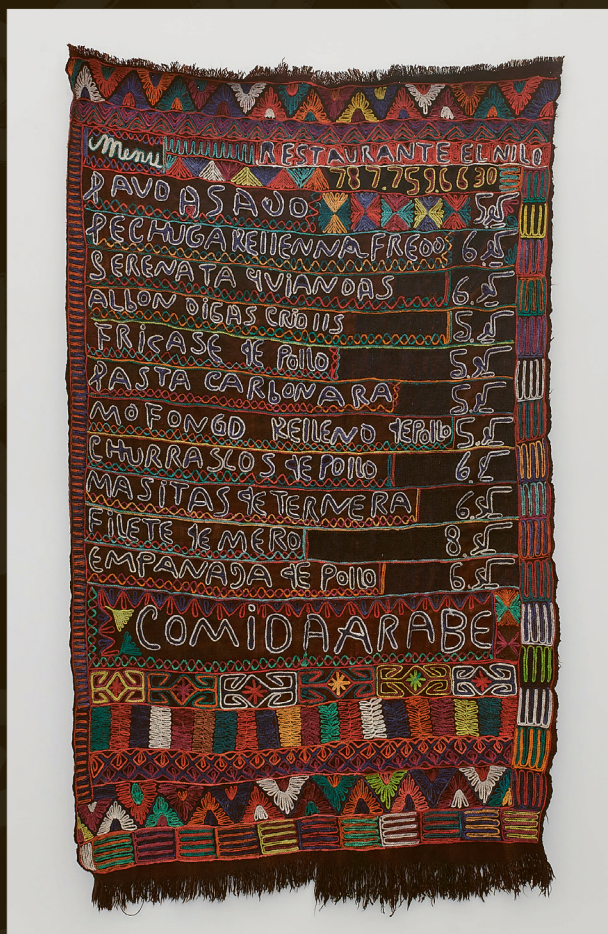 Menu RESTAURANTE EL NILO
787.759.6630
PAVO ASADO 5.25
PECHUGA RELLENNA FREDO 6.25
SERENATA Y VIANDAS 6.25
ALBON DIGAS CRIOllS 5.25
FRICASE dE Pollo 5.25
PASTA CARBONARA 5.25
MOFONGO RELLENO dEPollo 5.25
CHURRASCOS dE POllO 6.25
MASITAS dE TERNERA 6.25
FilETE dE MERO 8.25
EMPANADA dE Pollo 6.25
COMiDA ARABE